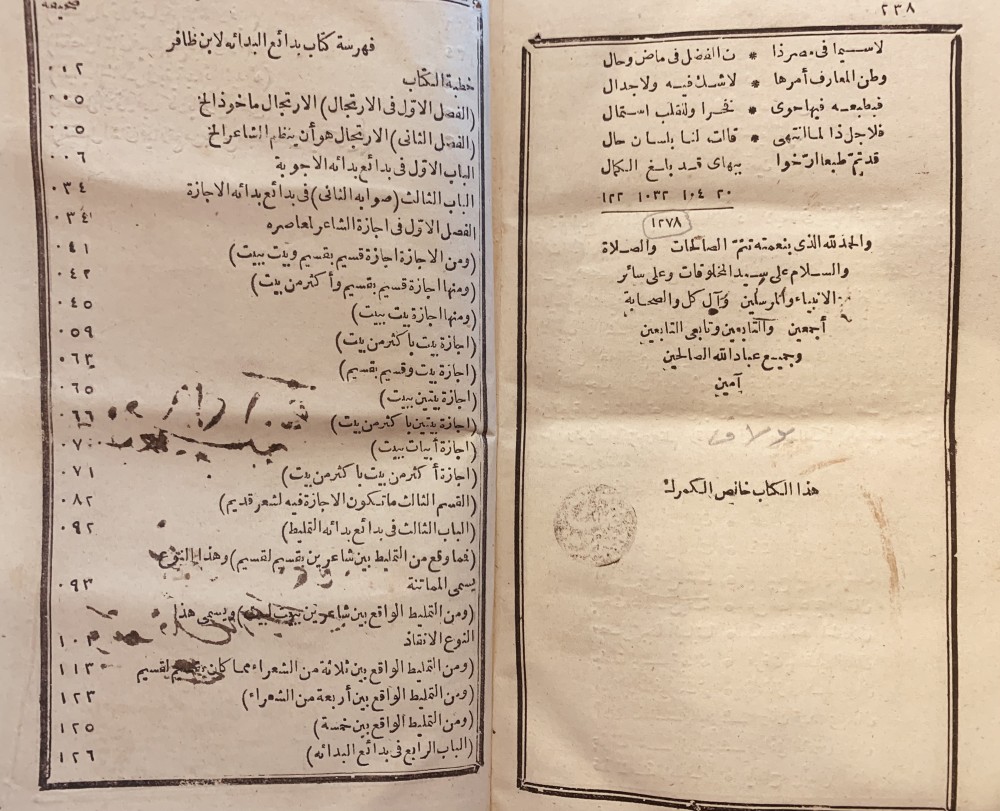 ٢٣٨
لاسيما فى مصر ذا * ن الفضل فى ماض وحال
وطن المعارف أمرها * لا شك فيه ولا جدال
فبطبعه فيها حوى * فخرا وللقلب استمال
فلاجل ذا لما انتهى * قالت لنا بلسان حال
قد تم طبعا ارّخوا ببهاى قد بلغ الكمال
٢٠ ١٠٤ ١٠٣٢ ١٢٢
١٢٧٨
والحمد لله الذى بنعمته تتم الصالحات والصلاة
والسلام على سيد المخلوقات وعلى سائر
الانبياء والمرسلين وآل كل والصحابة
أجمعين والتابعين وتابعى التابعين
وجميع عباد الله الصالحين
آمين
بولاق
هذا الكتاب خالص الكمرك
صحيفة
فهرسة كتاب بدائع البدائه لابن ظافر
خطبة الكتاب ٠٠٢
(الفصل الاوّل فى الارتجال) الارتجال ماخوذ الخ ٠٠٥
(الفصل الثانى) الارتجال هو أن ينظم الشاعر الخ ٠٠٥
الباب الاوّل فى بدائع بدائه الاجوبة ٠٠٦
الباب الثالث (صوابه الثانى) فى بدائع بدائه الاجازة ٠٣٤
الفصل الاوّل فى اجازة الشاعر لمعاصره ٠٣٤
(ومن الاجازة اجازة قسيم بقسيم وبيت ببيت) ٠٤١
(ومنها اجازة قسيم بقسيم وأكثر من بيت) ٠٤٢
(ومنها اجازة بيت ببيت) ٠٤٥
(اجازة بيت باكثر من بيت) ٠٥٩
(اجازة بيت وقسيم بقسيم) ٠٦٣
(اجازة بيتين ببيت) ٠٦٥
(اجازة بيتين باكثر من بيت) ٠٦٦
(اجازة أبيات ببيت) ٠٧٠
(اجازة أكثر من بيت باكثر من بيت) ٠٧١
(القسم الثالث ما تكون الاجازة فيه لشعر قديم) ٠٨٢
(الباب الثالث فى بدائع بدائه التمليط) ٠٩٢
(فما وقع من التمليط بين شاعرين بقسيم لقسيم) وهذا النوع
يسمى المماتنة ٠٩٣
(ومن التمليط الواقع بين شاعرين ببيت لبيت) ويسمى هذا
النوع الانفاذ
(ومن التمليط الواقع بين ثلاثة من الشعراء مما كان بقسيم لقسيم ١١٣
(ومن التمليط الواقع بين أربعة من الشعراء) ١٢٣
(ومن التمليط الواقع بين خمسة) ١٢٥
(الباب الرابع فى بدائع البدائه) ١٢٦